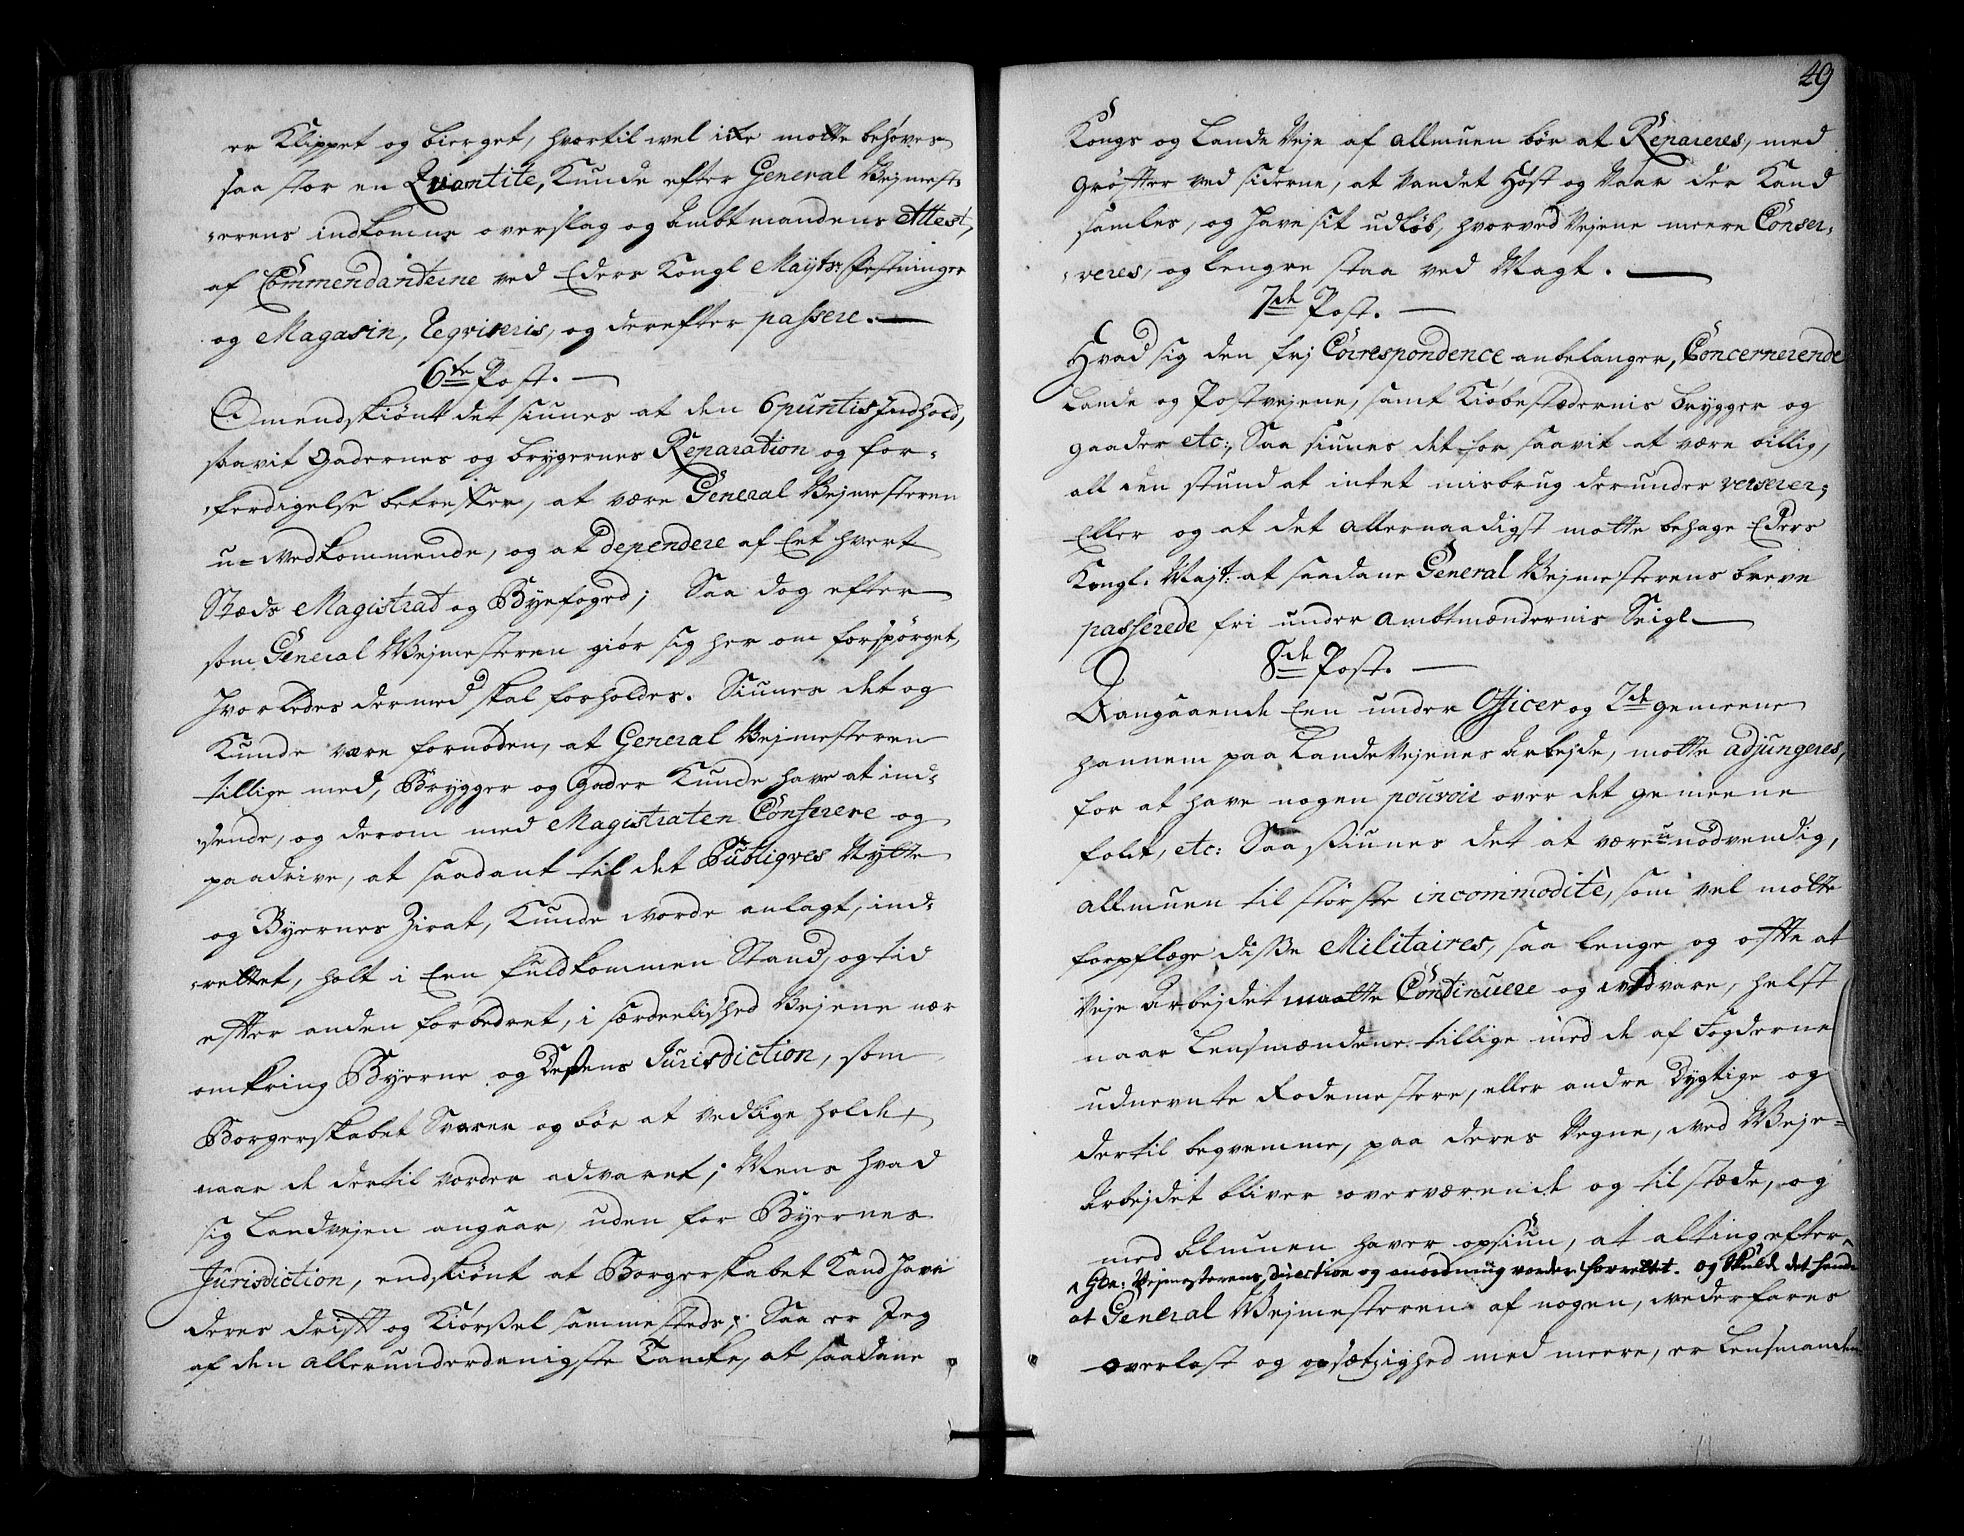 er Klippet og bierget, hvortil vel icke motte behøves
saa stor en Qvantite, Kunde efter General Vejmest-
erens indkomne overslag og Ambtmandens Attest,
af Commendanterne ved Eders Kongl Mayts: Festninger
og Magasin, Reqvireris, og derefter passere.
6te Post.
Omendskiønt det siunes at den 6 puntis Indhold,
saavit Gadernes og brygernes Reparation og for-
ferdigelse betreffer, at være General Vejmesteren
u-vedkommende, og at dependere af Eet hvert
Stæds Magistrat og Byefoged; Saa dog efter
som General Vejmesteren giør sig her om forspørget,
hvorledes dermed skal forholdes. Siunes det og
Kunde være fornøden, at General Vejmesteren
tillige med, Brygger og Gader Kunde have at ind-
sende, og derom med Magistraten Conferere og
paadrive, at saadant til det Publiqves Nytte
og Byernes Zirat, Kunde vorde anlagt, ind-
rettet, holt i Een fuldkommen Stand, og tid
efter anden forbedret, i særdeelished Vejene nær
omkring Byerne og Dessens Jurisdiction, som
Borgerskabet Svarer og bør at vedlige holde,
naar de dertil vorder advaret; Mens hvad
sig Landvejen angaar, uden for Byernes
Jurisdiction, endskiønt at Borgerskabet Kand have
deres drift og Kiørsel sammesteds; Saa er Jeg
af den allerunderdanigste Tancke, at saadane
49
Kongs og Lande Veje af Allmuen bør at Repareres, med
Grøfter ved siderne, at Vandet Høst og Vaar der Kand
samles, og have sit udløb, hvorved Vejene meere Conser-
veres, og lengre staa ved Magt.
7de Post.
Hvad sig den frj Correspondence anbelanger, Concernerende
Lande og Postvejene, samt Kiøbestædernis brygger og
gaader etc:, Saa siunes det for saavit at være billig,
all den stund at intet misbrug derunder verserer;
Eller og at det Allernaadigst motte behage Eders
Kongl. Mayt: at saadane General Vejmesterens breve
passerede fri under Ambtmændernis Seigl
8de Post.
Aangaaende Een under Officer og 2de gemeene
hannem paa LandeVejenes Arbejde, motte adjungeres,
for at have nogen pouvoir over det gemeene
folk, etc: Saa siunes det at være unødvendig,
allmuen til største incommodite, som vel motte
forpflege disse Militaires, saa lenge og ofte at
Veje Arbejdet maatte Continuere og vedvare, helst
naar Lensmændene tillige med de af Fogderne
udnevnte Rodemestere, eller andre Dygtige og
dertil beqvemme, paa deres Vegne, ved Veje-
Arbejdet bliver overværende og tilstæde, og
med Almuen haver opsiun, at alting efter
Gen: Vejmesterens direction og anordning vorder forrettet. og skulde det hende
at General Vejmesteren af nogen, wederfares
overlast og opsætzighed med meere, er Lensmanden